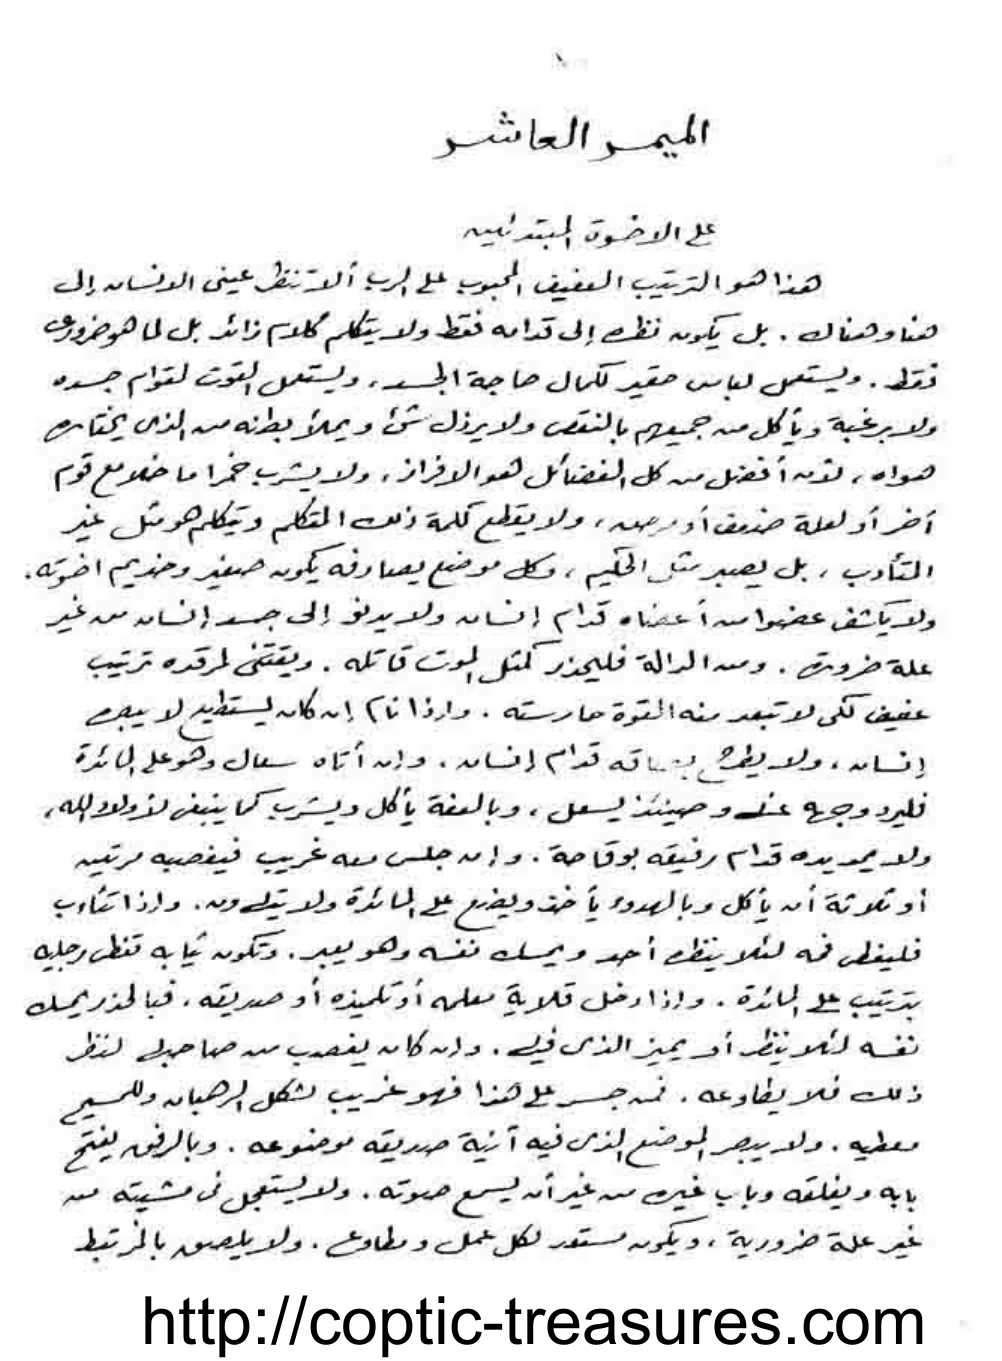 ١
الميمر العاشر
على الاخوة المبتدئين
هذا هو الترتيب العفيف المحبوب على الرب ألا تنظر عينى الانسان إلى
هنا وهناك . بل يكون نظره إلى قدامه فقط ولا يتكلم كلام زائد بل لما هو ضرورى
فقط . ويستعمل لباس حقير لكمال حاجة الجسد ، ويستعمل القوت لقوام جسده
ولا برغبة ويأكل من جميعهم بالنقص ولا يرذل شئ ويملأ بطنه من الذى يختاره
هواه ، لأن أفضل من كل الفضائل هو الافراز ، ولا يشرب خمرا ما خلا مع قوم
أخر أو لعلة ضعف أو مرض ، ولا يقطع كلمة ذلك المتكلم ويتكلم هو مثل غير
المتأدب ، بل يصبر مثل الحكيم ، وكل موضع يصادفه يكون صغير وخديم اخوته .
ولا يكاشف عضوا من أعضاه قدام إنسان ولا يدنو إلى جسد إنسان من غير
علة ضرورة . ومن الدالة فليحذر كمثل الموت قاتله . ويقتنى لمرقده ترتيب
عفيف لكى لا تبعد منه القوة حارسته . وإذا نام إن كان يستطيع لا يبصره
إنسان ، ولا يطرح بصاقه قدام إنسان . وإن أتاه سعال وهو على المائدة
فليرد وجهه عنه وحينئذ يسعل ، وبالعفة يأكل ويشرب كما ينبغى لأولاد الله ،
ولا يمد يده قدام رفيقه بوقاحة . وإن جلس معه غريب فيغصبه مرتين
أو ثلاثة أن يأكل وبالهدوء يأخذ ويضع على المائدة ولا يتلون . وإذا تثاءب
فليغطى فمه لئلا ينظره أحد ويمسك نفسه وهو يعبر . وتكون ثيابه تغطى رجليه
بترتيب على المائدة . وإذا دخل قلاية معلمه أو تلميذه أو صديقه . فبالحذر يمسك
نفسه لئلا ينظر أو يميز الذى فيها . وإن كان يغصب من صاحبها لنظر
ذلك فلا يطاوعه . فمن جسر على هذا فهو غريب لشكل الرهبان وللمسيح
معطيه . ولا يبصر الموضع الذى فيه آنية صديقه موضوعه . وبالرفق يفتح
بابه ويغلقه وباب غيره من غير أن يسمع صوته . ولا يستعجل فى مشيته من
غير علة ضرورية ، ويكون مستعد لكل عمل ومطاوع . ولا يلصق بالمرتبط
http://coptic-treasures.com